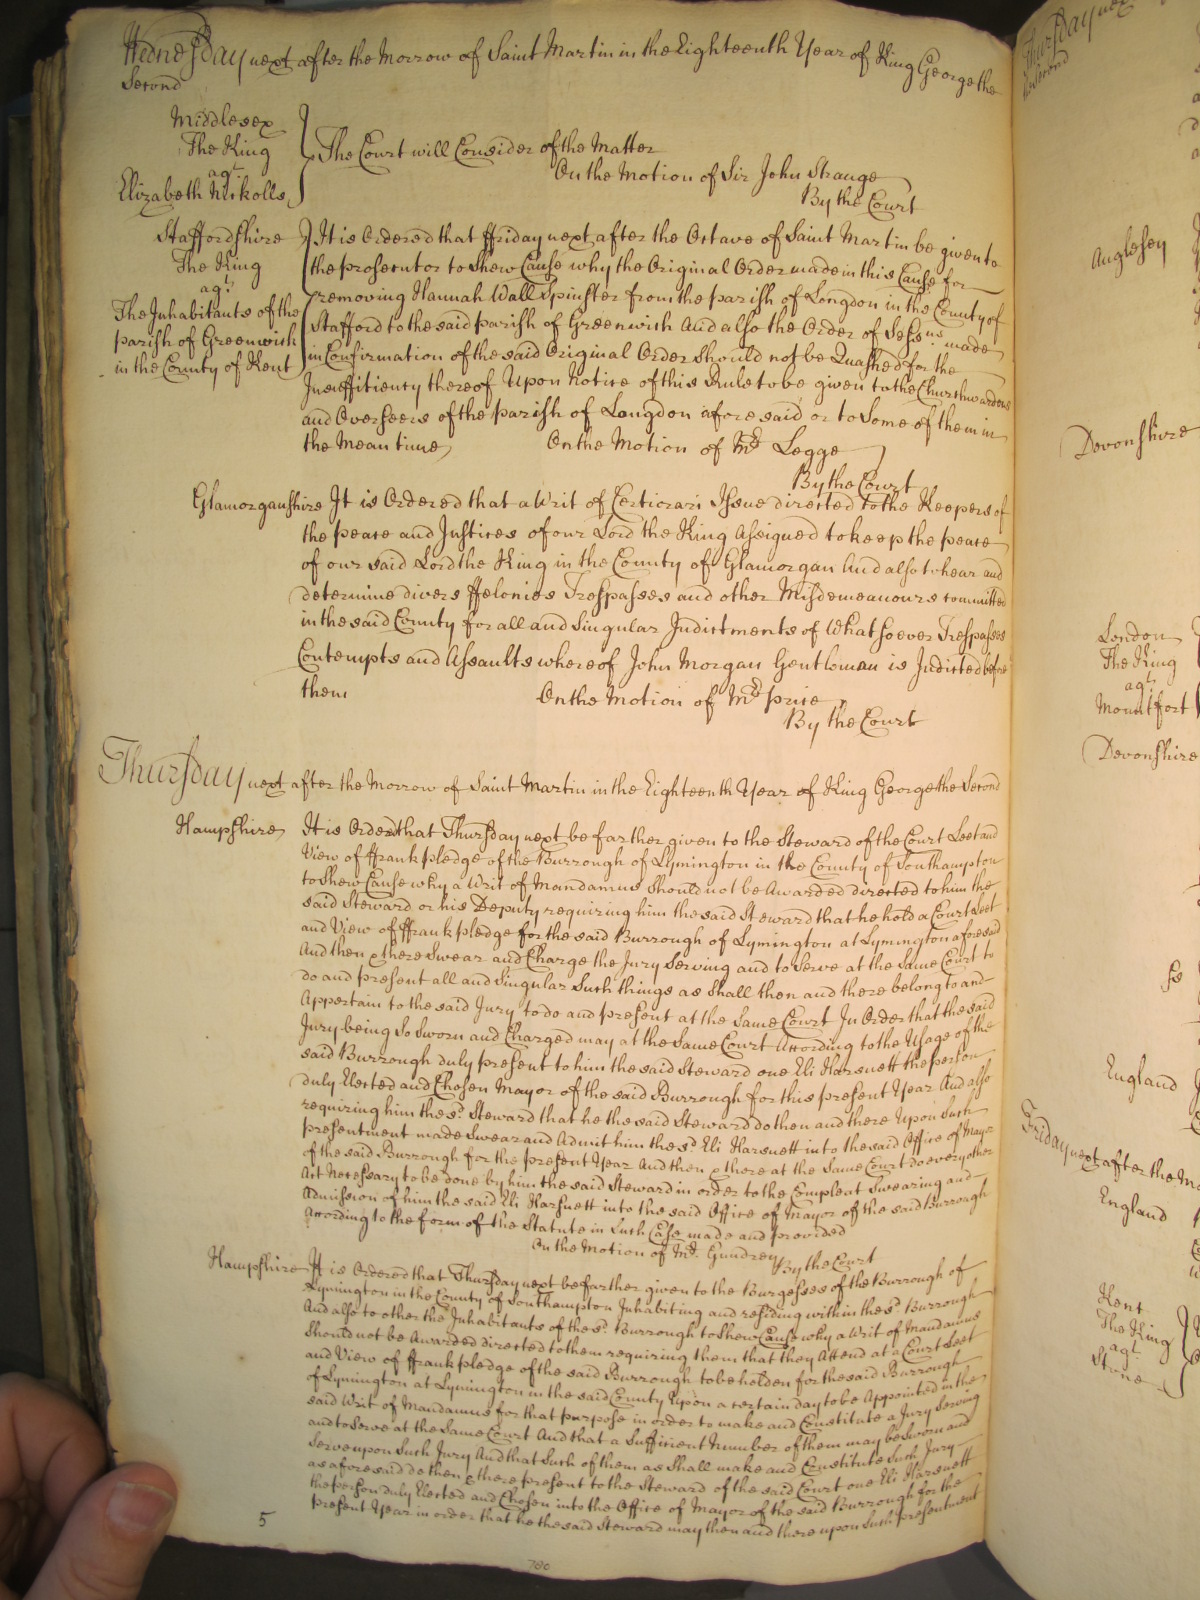 Wednesday next after the Morrow of Saint Martin in the Eighteenth Year of King George the
Second
Middlesex
The King
agt.
Elizabeth Nickolls
The Court will Consider of the Matter
On the Motion of Sir John Strange
By the Court
Staffordshire
The King
agt.
The Inhabitants of the
parish of Greenwich
in the County of Kent
It is Ordered that ffriday next after the Octave of Saint Martin be given to
the prosecutor to Shew Cause why the Original Order made in this Cause for
removing Hannah Wall Spinster from the parish of Longdon in the County of
Stafford to the said parish of Greenwich And also the Order of Sessns. made
in Confirmation of the said Original Order Should not be Quashed for the
Insuffitiency thereof Upon Notice of this Rule to be given to the Churchwardens
and Overseers of the parish of Longdon aforesaid or to Some of them in
the Mean time On the Motion of Mr. Legge
By the Court
Glamorganshire It is Ordered that a Writ of Certiorari Issue directed to the Keepers of
the peace and Justices of our Lord the King Assigned to keep the peace
of our said Lord the King in the County of Glamorgan And also to hear and
determine divers ffelonies Trespasses and other Misdemeanours committed
in the said County for all and Singular Indictments of Whatsoever Trespasses
Contempts and Assaults whereof John Morgan Gentleman is Indicted before
them On the Motion of Mr. price
By the Court
Thursday next after the Morrow of Saint Martin in the Eighteenth Year of King George the Second
Hampshire It is Ordered that Thursday next be farther given to the Steward of the Court Leet and
View of ffrankpledge of the Burrough of Lymington in the County of Southampton
to Shew Cause why a Writ of Mandamus Should not be Awarded directed to him the
said Steward or his Deputy requiring him the said Steward that he hold a Court Leet
and View of ffrankpledge for the said Burrough of Lymington at Lymington aforesaid
And then & there Swear and Charge the Jury Serving and to Serve at the Same Court to
do and present all and Singular Such things as Shall then and there belong to and
Appertain to the said Jury to do and present at the Same Court In Order that the said
Jury being So Sworn and Charged may at the Same Court According to the Usage of the
said Burrough duly present to him the said Steward one Eli Harsnett the person
duly Elected and Chosen Mayor of the said Burrough for this present Year And also
requiring him the sd. Steward that he the said Steward do then and there Upon Such
presentment made Swear and Admit him the sd. Eli Harsnett into the said Office of Mayor
of the said Burrough for the present Year And then & there at the Same Court do every other
Act Necessary to be done by him the said Steward in order to the Compleat Swearing and
Admission of him the said Eli Harsnett into the said Office of Mayor of the said Burrough
According to the form of the Statute in Such Case made and provided
On the Motion of Mr. Gundrey
By the Court
Hampshire It is Ordered that Thursday next be farther given to the Burgesses of the Burrough of
Lymington in the County of Southampton Inhabiting and residing within the sd. Burrough
And also to other the Inhabitants of the sd. Burrough to Shew Cause why a Writ of Mandamus
Should not be Awarded directed to them requiring them that they Attend at a Court Leet
and View of ffrankpledge of the said Burrough to be holden for the said Burrough
of Lymington at Lymington in the said County Upon a certain day to be Appointed in the
said Writ of Mandamus for that purpose in order to make and Constitute a Jury Serving
and to Serve at the Same Court And that a Sufficient Number of them may be Sworn and
Serve upon Such Jury And that Such of them as Shall make and Constitute Such Jury
as aforesaid do then & there present to the Steward of the said Court one Eli Harsnett
the person duly Elected and Chosen into the Office of Mayor of the said Burrough for the
present Year in order that he the said Steward may then and there upon Such presentment
5
780
Thursday next
the Second
Anglesey
Devonshire
London
The King
agt.
Mountfort
Devonshire
England
Friday next after the Mo
England
Kent
The King
agt.
Stone